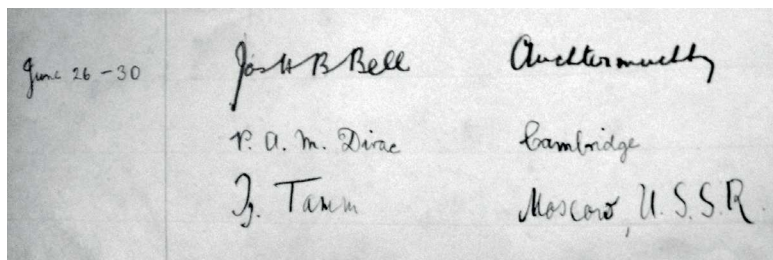 June 26 - 30 Jas H B Bell Auchtermuchty
P. A. M. Dirac Cambridge
Ig. Tamm Moscow, U.S.S.R.